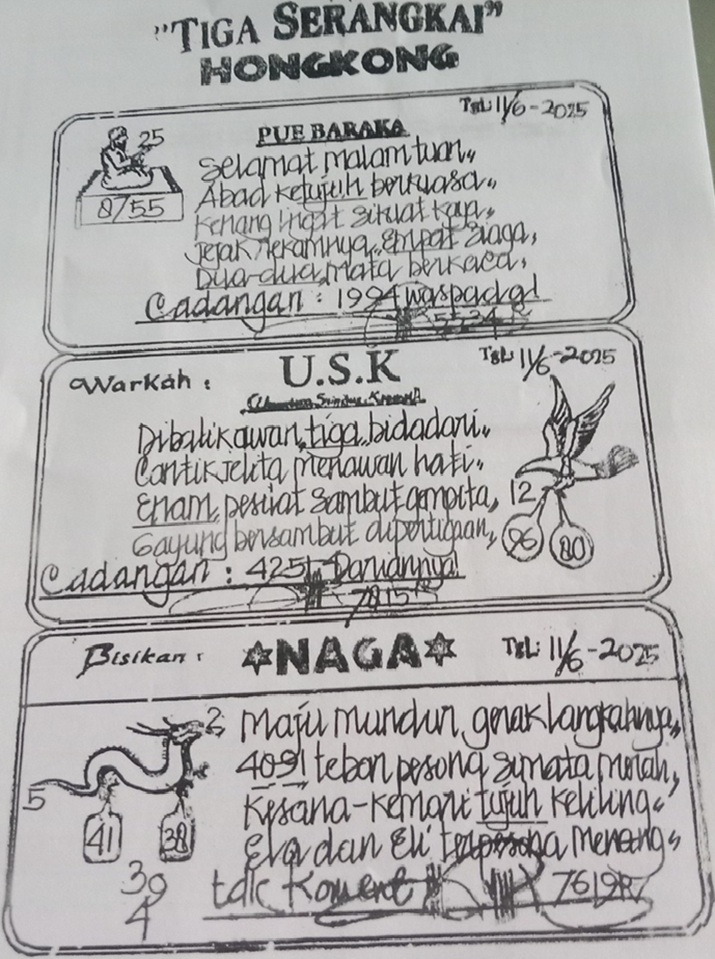 "TIGA SERANGKAI"
HONGKONG
Tgl: 11/6-2025
25
8/55
PUE BARAKA
Selamat, malam tuan,,
Abad ketujuh berkuasa,,
Kenang ingat sikuat kaya,
Jejak rekamnya,, Empat siaga,
Dua-dua, mata berkaca,
Cadangan : 1994 waspada!
5524
Warkah :
U.S.K
Tgl: 11/6-2025
Dibalik awan, tiga,, bidadari,,
Cantik jelita menawan hati,,
Enam, pesiat sambut gempita,
Gayung bersambut dipertigaan,
12
96
80
Cadangan : 4251
7815
Bisikan :
NAGA
Tgl: 11/6-2025
2
5
41
38
39
4
Maju mundur, gerak langkahnya,,
4091 pesona simata merah,
Kesana-kemari tujuh keliling
Ela dan Eli terpesona menang
tdk Koment
7619R